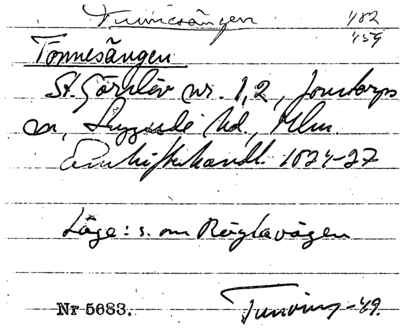 Tunnesången 182
159
Tonnesången
St. Görslöv nr. 1,2, Jonstorps
sn, Luggude hd., Mlm.
Enskifteshandl. 1824-27
Läge: s. om Röglavägen
Nr 5683. Tuneving -49.